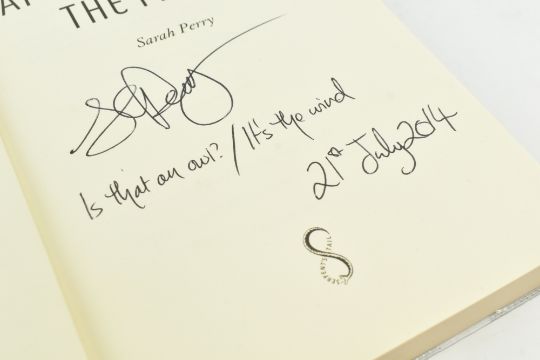 THE
Sarah Perry
S Perry
Is that an owl? / It's the wind
21st July 2014
SERPENT'S TAIL